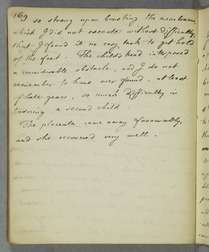 169
so strong upon breaking the membranes
which I did not execute without difficulty
that I found it no easy task to get hold
of the feet. The child's head interposed
a considerable obstacle, and I do not
remember to have ever found, at least
of late years, so much difficulty in
turning a second child.
The placenta came away favourably,
and she recovered very well.